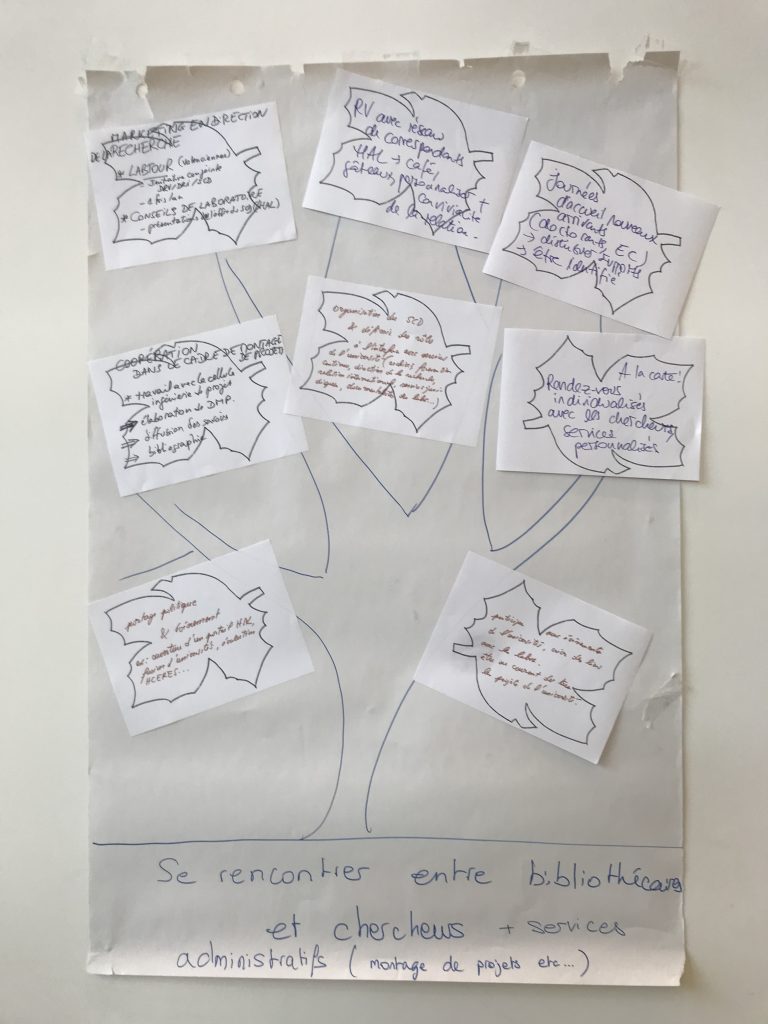 MARKETING EN DIRECTION
DE LA RECHERCHE
* LABTOUR (Valenciennes)
- Initiative conjointe
DRV/DRI/SCD
- 1 fois/an
* CONSEILS DE LABORATOIRE
- présentation de l'offre du SCD (HAL)
RV avec réseau
de correspondants
HAL → café,
gâteaux, personnaliser +
convivialité
de la relation.
Journées
d'accueil nouveaux
arrivants
(doctorants, EC)
→ distribuer supports
→ être identifié
COOPÉRATION
DANS LE CADRE DE MONTAGE
DE PROJET
* travail avec la cellule
ingénierie de projet
→ élaboration de DMP.
→ diffusion des savoirs
→ bibliographie
organisation du SCD
& définir des rôles
à l'interface avec services
de l'université
direction de la recherche
relation internationale
À la carte!
Rendez-vous
individualisés
avec les chercheurs,
services
personnalisés
portage politique
& évènement
ex: ouverture d'un portail HAL,
fusion d'universités, évaluation
HCERES...
participer aux évènements
de l'université, créer des liens
avec les labos.
être au courant des
projets de l'université.
Se rencontrer entre bibliothécaires
et chercheurs + services
administratifs ( montage de projets etc...)